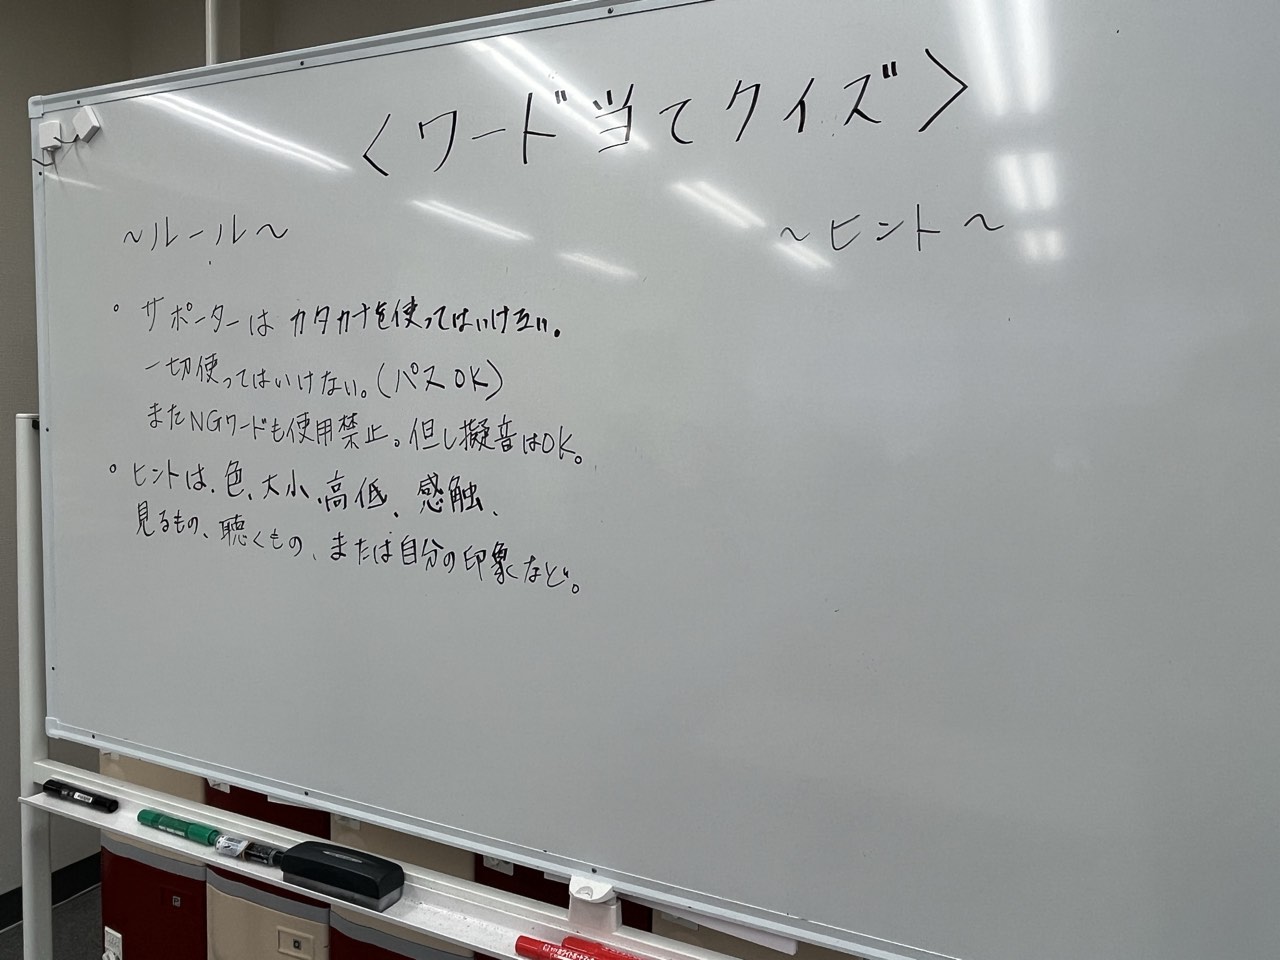 〈ワード当てクイズ〉
～ルール～
° サポーターはカタカナを使ってはいけない。
一切使ってはいけない。(パスOK)
またNGワードも使用禁止。但し擬音はOK。
° ヒントは、色、大小、高低、感触、
見るもの、聴くもの、または自分の印象など。
～ヒント～